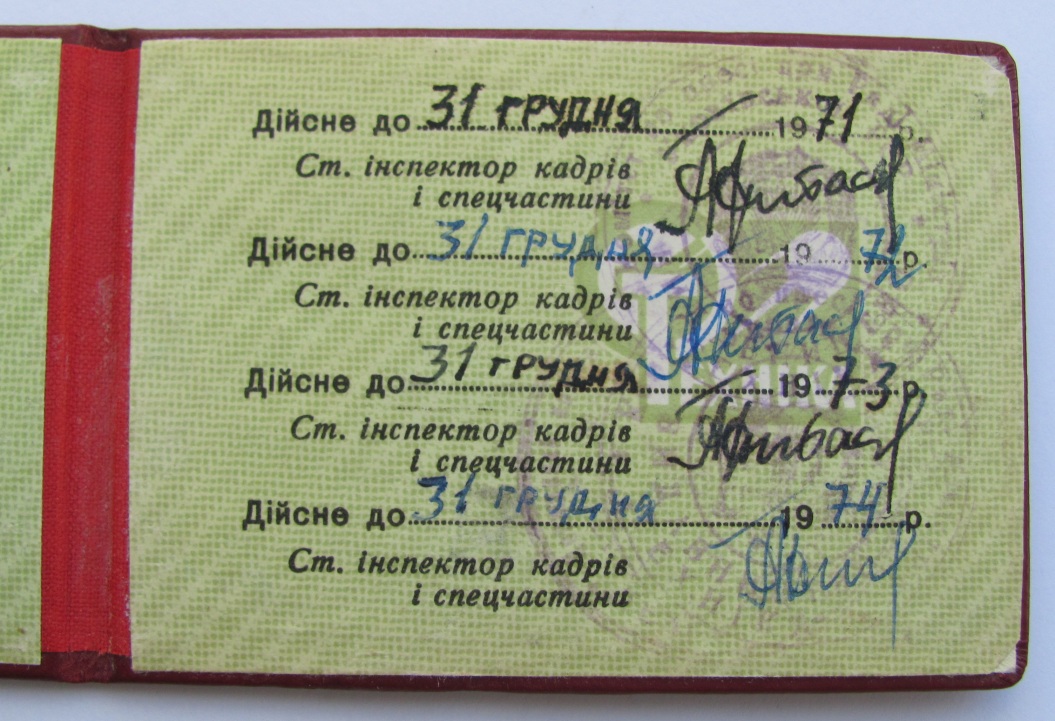 Дійсне до 31 грудня 1971 р.
Ст. інспектор кадрів
і спецчастини
Дійсне до 31 грудня 1972 р.
Ст. інспектор кадрів
і спецчастини
Дійсне до 31 грудня 1973 р.
Ст. інспектор кадрів
і спецчастини
Дійсне до 31 грудня 1974 р.
Ст. інспектор кадрів
і спецчастини